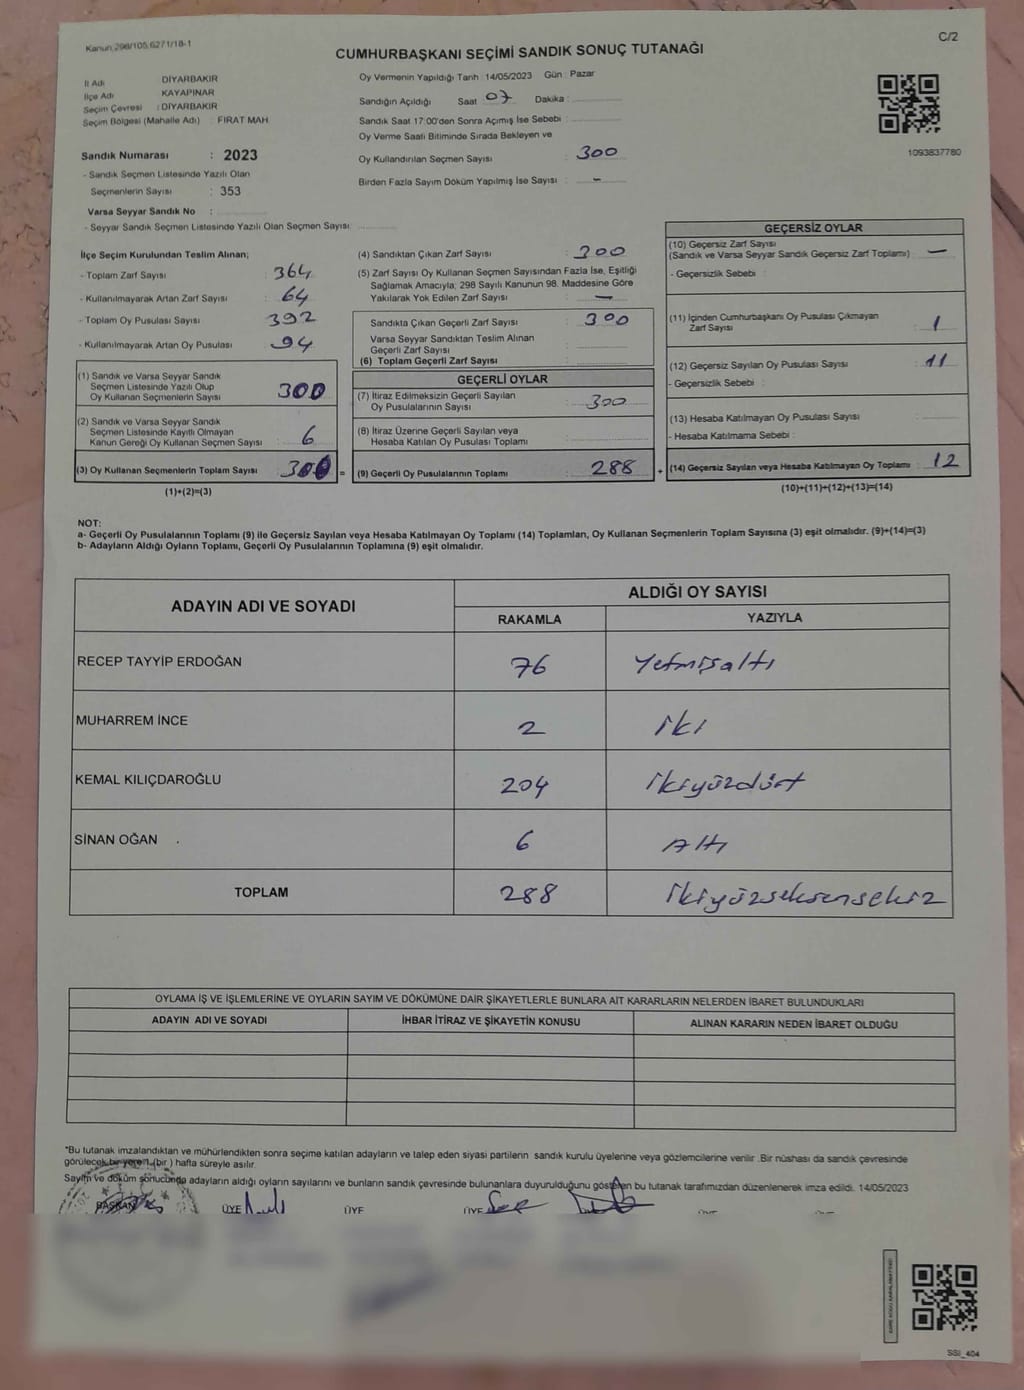 Kanun 298/105,6271/18-1
C/2
CUMHURBAŞKANI SEÇİMİ SANDIK SONUÇ TUTANAĞI
İl Adı DİYARBAKIR
İlçe Adı KAYAPINAR
Seçim Çevresi : DİYARBAKIR
Seçim Bölgesi (Mahalle Adı) : FIRAT MAH.
Sandık Numarası : 2023
- Sandık Seçmen Listesinde Yazılı Olan
Seçmenlerin Sayısı : 353
Varsa Seyyar Sandık No :
- Seyyar Sandık Seçmen Listesinde Yazılı Olan Seçmen Sayısı:
Oy Vermenin Yapıldığı Tarih : 14/05/2023 Gün : Pazar
Sandığın Açıldığı Saat : 07 Dakika :
Sandık Saat 17:00'den Sonra Açımış İse Sebebi :
Oy Verme Saati Bitiminde Sırada Bekleyen ve
Oy Kullandırılan Seçmen Sayısı : 300
Birden Fazla Sayım Döküm Yapılmış İse Sayısı : -
1093837780
İlçe Seçim Kurulundan Teslim Alınan;
- Toplam Zarf Sayısı : 364
- Kullanılmayarak Artan Zarf Sayısı : 64
- Toplam Oy Pusulası Sayısı : 392
- Kullanılmayarak Artan Oy Pusulası : 94
(1) Sandık ve Varsa Seyyar Sandık
Seçmen Listesinde Yazılı Olup
Oy Kullanan Seçmenlerin Sayısı 300
(2) Sandık ve Varsa Seyyar Sandık
Seçmen Listesinde Kayıtlı Olmayan
Kanun Gereği Oy Kullanan Seçmen Sayısı 6
(3) Oy Kullanan Seçmenlerin Toplam Sayısı 300 =
(1)+(2)=(3)
(4) Sandıktan Çıkan Zarf Sayısı : 300
(5) Zarf Sayısı Oy Kullanan Seçmen Sayısından Fazla İse, Eşitliği
Sağlamak Amacıyla; 298 Sayılı Kanunun 98. Maddesine Göre
Yakılarak Yok Edilen Zarf Sayısı : -
Sandıkta Çıkan Geçerli Zarf Sayısı : 300
Varsa Seyyar Sandıktan Teslim Alınan
Geçerli Zarf Sayısı :
(6) Toplam Geçerli Zarf Sayısı :
GEÇERLİ OYLAR
(7) İtiraz Edilmeksizin Geçerli Sayılan
Oy Pusulalarının Sayısı : 300
(8) İtiraz Üzerine Geçerli Sayılan veya
Hesaba Katılan Oy Pusulası Toplamı :
(9) Geçerli Oy Pusulalarının Toplamı : 288 +
GEÇERSİZ OYLAR
(10) Geçersiz Zarf Sayısı
(Sandık ve Varsa Seyyar Sandık Geçersiz Zarf Toplamı) : -
- Geçersizlik Sebebi :
(11) İçinden Cumhurbaşkanı Oy Pusulası Çıkmayan
Zarf Sayısı : 1
(12) Geçersiz Sayılan Oy Pusulası Sayısı : 11
- Geçersizlik Sebebi :
(13) Hesaba Katılmayan Oy Pusulası Sayısı :
- Hesaba Katılmama Sebebi :
(14) Geçersiz Sayılan veya Hesaba Katılmayan Oy Toplamı : 12
(10)+(11)+(12)+(13)=(14)
NOT:
a- Geçerli Oy Pusulalarının Toplamı (9) ile Geçersiz Sayılan veya Hesaba Katılmayan Oy Toplamı (14) Toplamları, Oy Kullanan Seçmenlerin Toplam Sayısına (3) eşit olmalıdır. (9)+(14)=(3)
b- Adayların Aldığı Oyların Toplamı, Geçerli Oy Pusulalarının Toplamına (9) eşit olmalıdır.
ADAYIN ADI VE SOYADI
ALDIĞI OY SAYISI
RAKAMLA YAZIYLA
RECEP TAYYİP ERDOĞAN 76 Yetmişaltı
MUHARREM İNCE 2 iki
KEMAL KILIÇDAROĞLU 204 ikiyüzdört
SİNAN OĞAN 6 Altı
TOPLAM 288 ikiyüzseksensekiz
OYLAMA İŞ VE İŞLEMLERİNE VE OYLARIN SAYIM VE DÖKÜMÜNE DAİR ŞİKAYETLERLE BUNLARA AİT KARARLARIN NELERDEN İBARET BULUNDUKLARI
ADAYIN ADI VE SOYADI İHBAR İTİRAZ VE ŞİKAYETİN KONUSU ALINAN KARARIN NEDEN İBARET OLDUĞU
*Bu tutanak imzalandıktan ve mühürlendikten sonra seçime katılan adayların ve talep eden siyasi partilerin sandık kurulu üyelerine veya gözlemcilerine verilir. Bir nüshası da sandık çevresinde
görülecek bir yere 1 (bir) hafta süreyle asılır.
Sayım ve döküm sonucunda adayların aldığı oyların sayılarını ve bunların sandık çevresinde bulunanlara duyurulduğunu gösteren bu tutanak tarafımızdan düzenlenerek imza edildi. 14/05/2023
BAŞKAN ÜYE ÜYE ÜYE
SSI_404